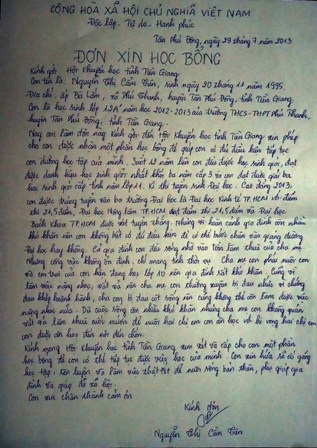 CỘNG HOÀ XÃ HỘI CHỦ NGHĨA VIỆT NAM
Độc lập - Tự do - Hạnh phúc
Tân Phú Đông, ngày 29 tháng 7 năm 2013
ĐƠN XIN HỌC BỔNG
Kính gởi: Hội Khuyến học tỉnh Tiền Giang
Con tên là: Nguyễn Thị Cẩm Tiên, sinh ngày 20 tháng 11 năm 1995.
Địa chỉ: ấp Bà Lắm, xã Phú Thạnh, huyện Tân Phú Đông, tỉnh Tiền Giang.
Con là học sinh lớp 12A năm học 2012-2013 của trường THCS-THPT Phú Thạnh,
huyện Tân Phú Đông, tỉnh Tiền Giang.
Nay con làm đơn này kính gởi đến Hội Khuyến học tỉnh Tiền Giang xin phép
cho con được nhận một phần học bổng để giúp con đi thi đầu tiên tiếp tục
con đường học tập của mình. Suốt 12 năm liền con đều được học sinh giỏi, đạt
được danh hiệu học sinh giỏi nhất khối ba năm cấp 3 và con đạt được giải ba
học sinh giỏi cấp tỉnh năm lớp 11. Kì thi tuyển sinh Đại học - Cao đẳng 2013,
con được trúng tuyển vào trường Đại học là Đại học Kinh tế TP.HCM với điểm
thi 21,5 điểm, Đại học Ngân hàng TP.HCM đạt điểm thi 21,5 điểm và Đại học
Bách khoa TP.HCM được xét tuyển thẳng. Nhưng vì hoàn cảnh gia đình còn nhiều
khó khăn nên con không biết có đủ điều kiện để có thể bước chân vào giảng đường
Đại học hay không. Cả gia đình con đều sống nhờ vào tiền làm thuê của cha mẹ.
Nhưng công việc không ổn định, chỉ mang tính thời vụ. Cha mẹ con phải nuôi con
và em trai của con hiện đang học lớp 10 nên gia đình rất khó khăn. Cũng vì
làm việc nặng nhọc, vất vả nên cha mẹ con thường xuyên bị đau nhức vì chứng
đau khớp hoành hành, cha con bị đau cột sống nên cũng không thể còn làm được việc
nặng nhọc nữa. Dù cuộc sống còn nhiều khó khăn nhưng cha mẹ con không quản
vất vả làm thuê cuốc mướn để nuôi hai chị em con ăn học với hi vọng hai chị em
con được có học đến nơi đến chốn.
Kính mong Hội Khuyến học tỉnh Tiền Giang xem xét và cấp cho con một phần
học bổng để con có thể tiếp tục được việc học của mình. Con xin hứa sẽ cố gắng
học tập, rèn luyện và làm việc thật tốt để nuôi sống bản thân, phụ giúp gia
đình và giúp đỡ xã hội.
Con xin chân thành cảm ơn
Kính đơn
Nguyễn Thị Cẩm Tiên